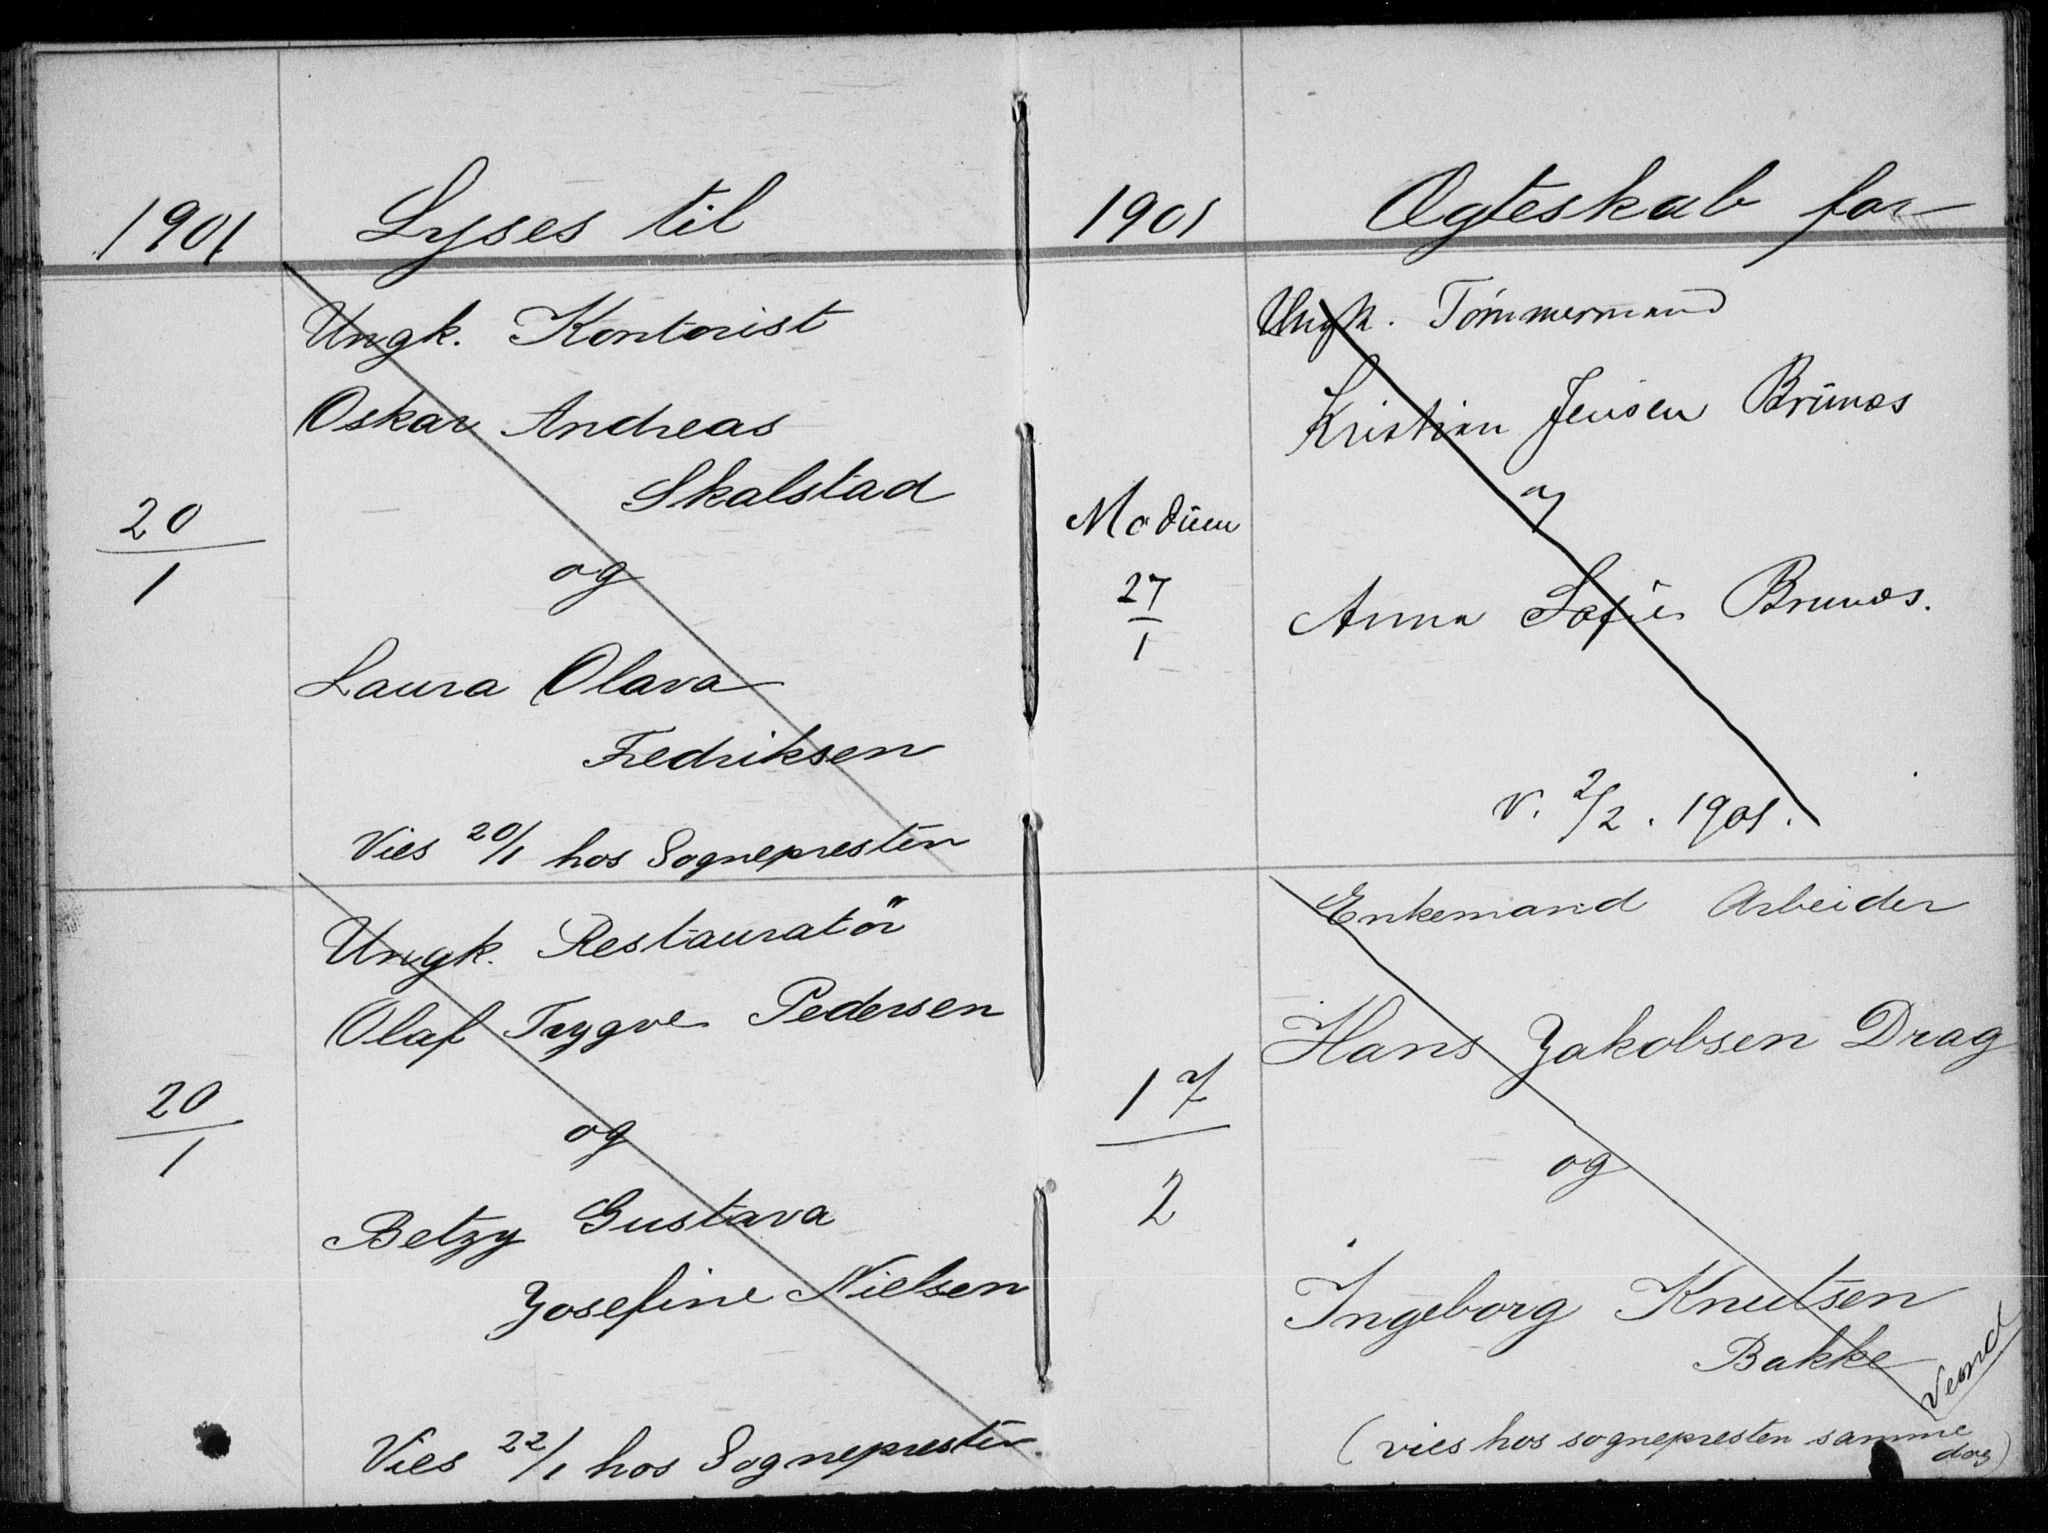 1901 Lyses til
Ungk. Kontorist
Oskar Andreas
Skalstad
20
1
og
Laura Olava
Fredriksen
Vies 20/1 hos Sognepresten
Ungk. Restauratör
Olaf Trygve Pedersen
20
1
og
Betzy Gustava
Josefine Nielsen
Vies 22/1 hos Sognepresten
1901 Ægteskab for
Ungk. Tømmermand
Kristian Jensen Brunæs
Modum
27
1
og
Anna Sofie Brunæs.
V. 2/2. 1901.
Enkemand Arbeider
Hans Jakobsen Drag
17
2
og
Ingeborg Knutsen
Bakke
Vend
(vies hos sognepresten samme
dag)